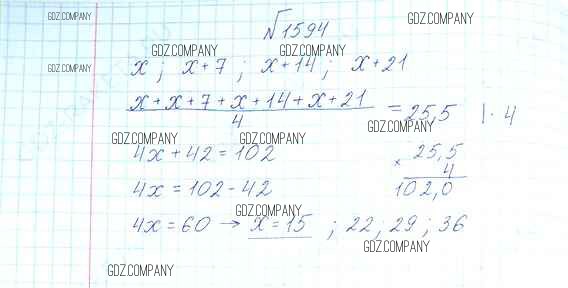 √1594 GDZ.COMPANY
GDZ.COMPANY
GDZ.COMPANY GDZ.COMPANY
GDZ.COMPANY
x ; x+7 ; x+14 ; x+21
x+x+7+x+14+x+21
4
= 25,5 |· 4
GDZ.COMPANY GDZ.COMPANY GDZ.COMPANY
4x+42=102
× 25,5
4
102,0
4x=102-42
GDZ.COMPANY
4x=60 → x=15 ; 22; 29; 36
GDZ.COMPANY
GDZ.COMPANY